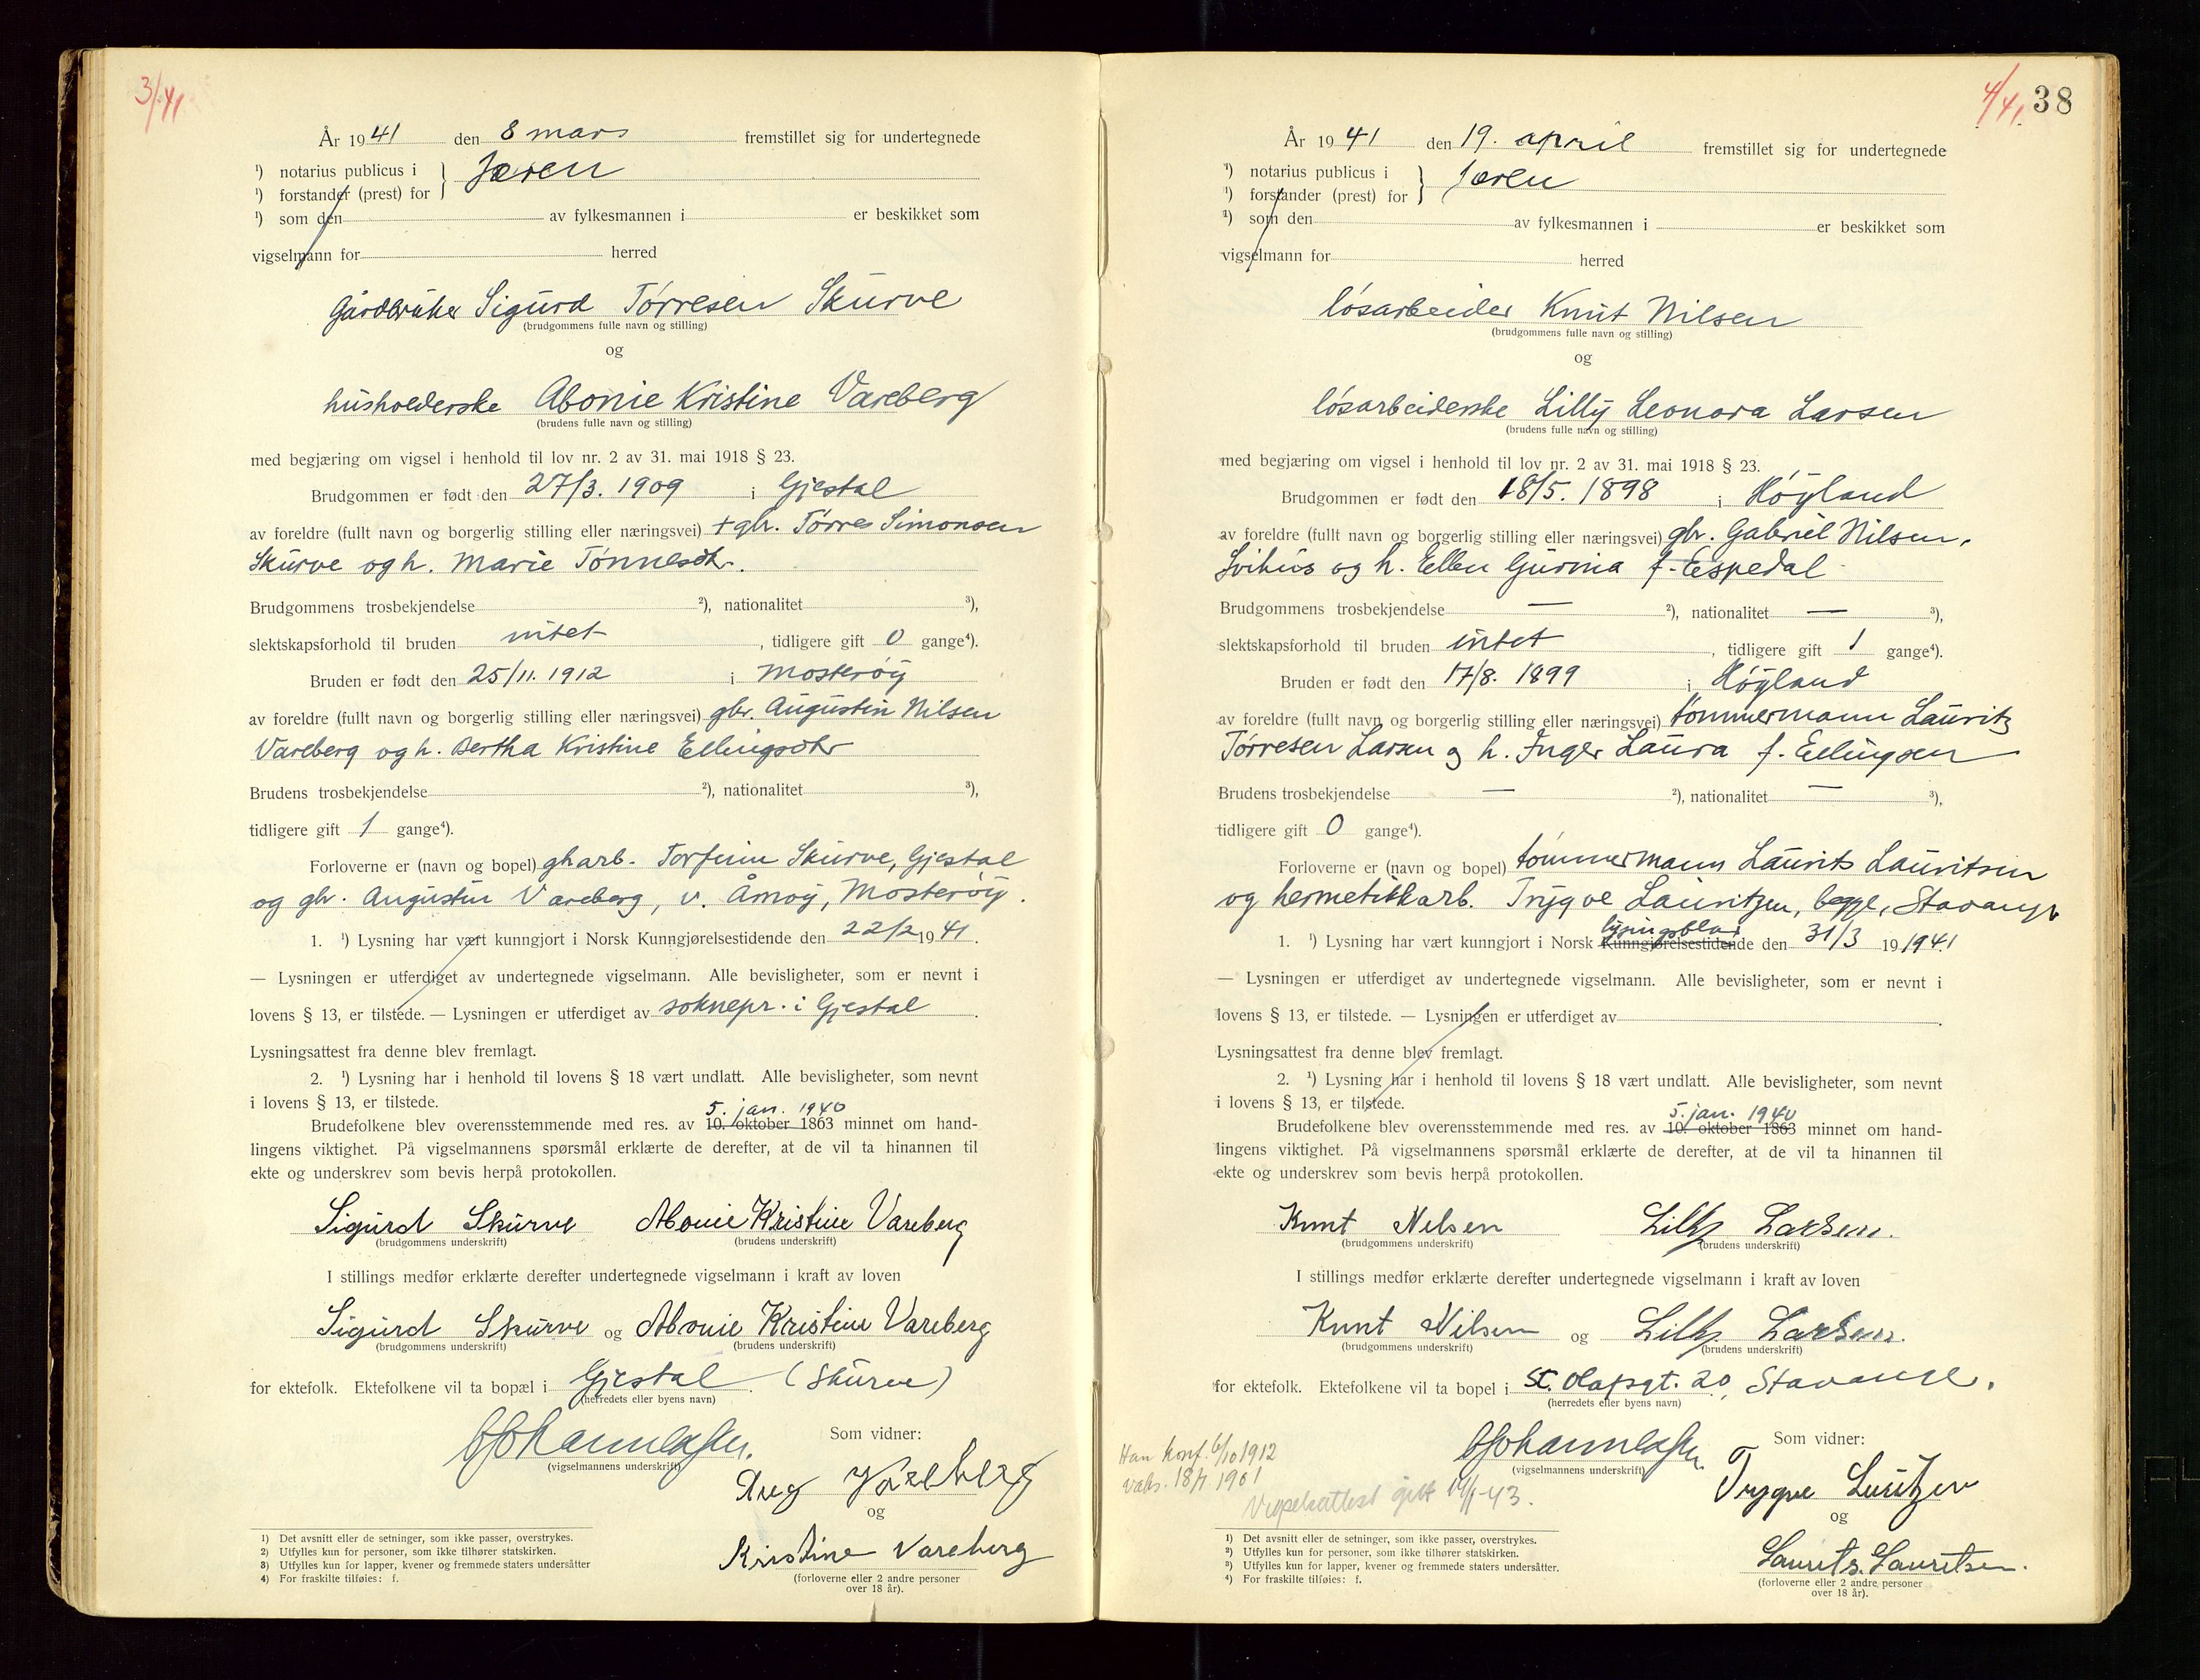 3/41
År 1941 den 8 mars fremstillet sig for undertegnede
¹) notarius publicus i } Jæren
¹) forstander (prest) for
¹) som den av fylkesmannen i er beskikket som
vigselmann for herred
Gårdbruker Sigurd Tørresen Skurve
(brudgommens fulle navn og stilling)
og
husholderske Abonie Kristine Vareberg
(brudens fulle navn og stilling)
med begjæring om vigsel i henhold til lov nr. 2 av 31. mai 1918 § 23.
Brudgommen er født den 27/3. 1909 i Gjestal
av foreldre (fullt navn og borgerlig stilling eller næringsvei) + gbr. Tørres Simonsen
Skurve og h. Marie Tønnesdtr.
Brudgommens trosbekjendelse ²), nationalitet ³),
slektskapsforhold til bruden intet, tidligere gift 0 gange⁴).
Bruden er født den 25/11. 1912 i Mosterøy
av foreldre (fullt navn og borgerlig stilling eller næringsvei) gbr. Augustin Nilsen
Vareberg og h. Bertha Kristine Ellingsdtr
Brudens trosbekjendelse ²), nationalitet ³),
tidligere gift 1 gange⁴).
Forloverne er (navn og bopel) gbarb. Torfinn Skurve, Gjestal
og gbr. Augustin Vareberg, v. Åmøy, Mosterøy.
1. ¹) Lysning har vært kunngjort i Norsk Kunngjørelsestidende den 22/2 1941.
— Lysningen er utferdiget av undertegnede vigselmann. Alle bevisligheter, som er nevnt i
lovens § 13, er tilstede. — Lysningen er utferdiget av soknepr. i Gjestal.
Lysningsattest fra denne blev fremlagt.
2. ¹) Lysning har i henhold til lovens § 18 vært undlatt. Alle bevisligheter, som nevnt
i lovens § 13, er tilstede.
5. jan. 1940
Brudefolkene blev overensstemmende med res. av 10. oktober 1863 minnet om hand-
lingens viktighet. På vigselmannens spørsmål erklærte de derefter, at de vil ta hinannen til
ekte og underskrev som bevis herpå protokollen.
Sigurd Skurve Abonie Kristine Vareberg
(brudgommens underskrift) (brudens underskrift)
I stillings medfør erklærte derefter undertegnede vigselmann i kraft av loven
Sigurd Skurve og Abonie Kristine Vareberg
(brudgommens underskrift) (brudens underskrift)
for ektefolk. Ektefolkene vil ta bopæl i Gjestal. (Skurve)
(herredets eller byens navn)
Som vidner:
(vigselmannens underskrift)
Aug Vareberg
og
Kristine Vareberg
(forloverne eller 2 andre personer
over 18 år).
1) Det avsnitt eller de setninger, som ikke passer, overstrykes.
2) Utfylles kun for personer, som ikke tilhører statskirken.
3) Utfylles kun for lapper, kvener og fremmede staters undersåtter
4) For fraskilte tilføies: f.
4/41. 38
År 1941 den 19. april fremstillet sig for undertegnede
¹) notarius publicus i } Jæren
¹) forstander (prest) for
¹) som den av fylkesmannen i er beskikket som
vigselmann for herred
løsarbeider Knut Nilsen
(brudgommens fulle navn og stilling)
og
løsarbeiderske Lilly Leonora Larsen
(brudens fulle navn og stilling)
med begjæring om vigsel i henhold til lov nr. 2 av 31. mai 1918 § 23.
Brudgommen er født den 18/5. 1898 i Høyland
av foreldre (fullt navn og borgerlig stilling eller næringsvei) gbr. Gabriel Nilsen,
Svihus og h. Ellen Gurina f. Espedal
Brudgommens trosbekjendelse — ²), nationalitet — ³),
slektskapsforhold til bruden intet, tidligere gift 1 gange⁴).
Bruden er født den 17/8. 1899 i Høyland
av foreldre (fullt navn og borgerlig stilling eller næringsvei) tømmermann Lauritz
Tørresen Larsen og h. Inger Laura f. Ellingsen
Brudens trosbekjendelse — ²), nationalitet — ³),
tidligere gift 0 gange⁴).
Forloverne er (navn og bopel) tømmermann Laurits Lauritsen
og hermetikkarb. Trygve Lauritzen, begge, Stavanger
lysingsblad
1. ¹) Lysning har vært kunngjort i Norsk Kunngjørelsestidende den 31/3 19 1941
— Lysningen er utferdiget av undertegnede vigselmann. Alle bevisligheter, som er nevnt i
lovens § 13, er tilstede. — Lysningen er utferdiget av .
Lysningsattest fra denne blev fremlagt.
2. ¹) Lysning har i henhold til lovens § 18 vært undlatt. Alle bevisligheter, som nevnt
i lovens § 13, er tilstede.
5. jan. 1940
Brudefolkene blev overensstemmende med res. av 10. oktober 1863 minnet om hand-
lingens viktighet. På vigselmannens spørsmål erklærte de derefter, at de vil ta hinannen til
ekte og underskrev som bevis herpå protokollen.
Knut Nilsen Lilly Larsen.
(brudgommens underskrift) (brudens underskrift)
I stillings medfør erklærte derefter undertegnede vigselmann i kraft av loven
Knut Nilsen og Lilly Larsen.
(brudgommens underskrift) (brudens underskrift)
for ektefolk. Ektefolkene vil ta bopel i St. Olafsgt. 20, Stavanger.
(herredets eller byens navn)
Som vidner:
(vigselmannens underskrift)
Han konf. 6/10 1912
vaks. 18/7. 1901
Vigselsattest gitt 43.
Trygve Luritzen
og
Laurits. Lauritsen.
(forloverne eller 2 andre personer
over 18 år).
1) Det avsnitt eller de setninger, som ikke passer, overstrykes.
2) Utfylles kun for personer, som ikke tilhører statskirken.
3) Utfylles kun for lapper, kvener og fremmede staters undersåtter.
4) For fraskilte tilføies: f.